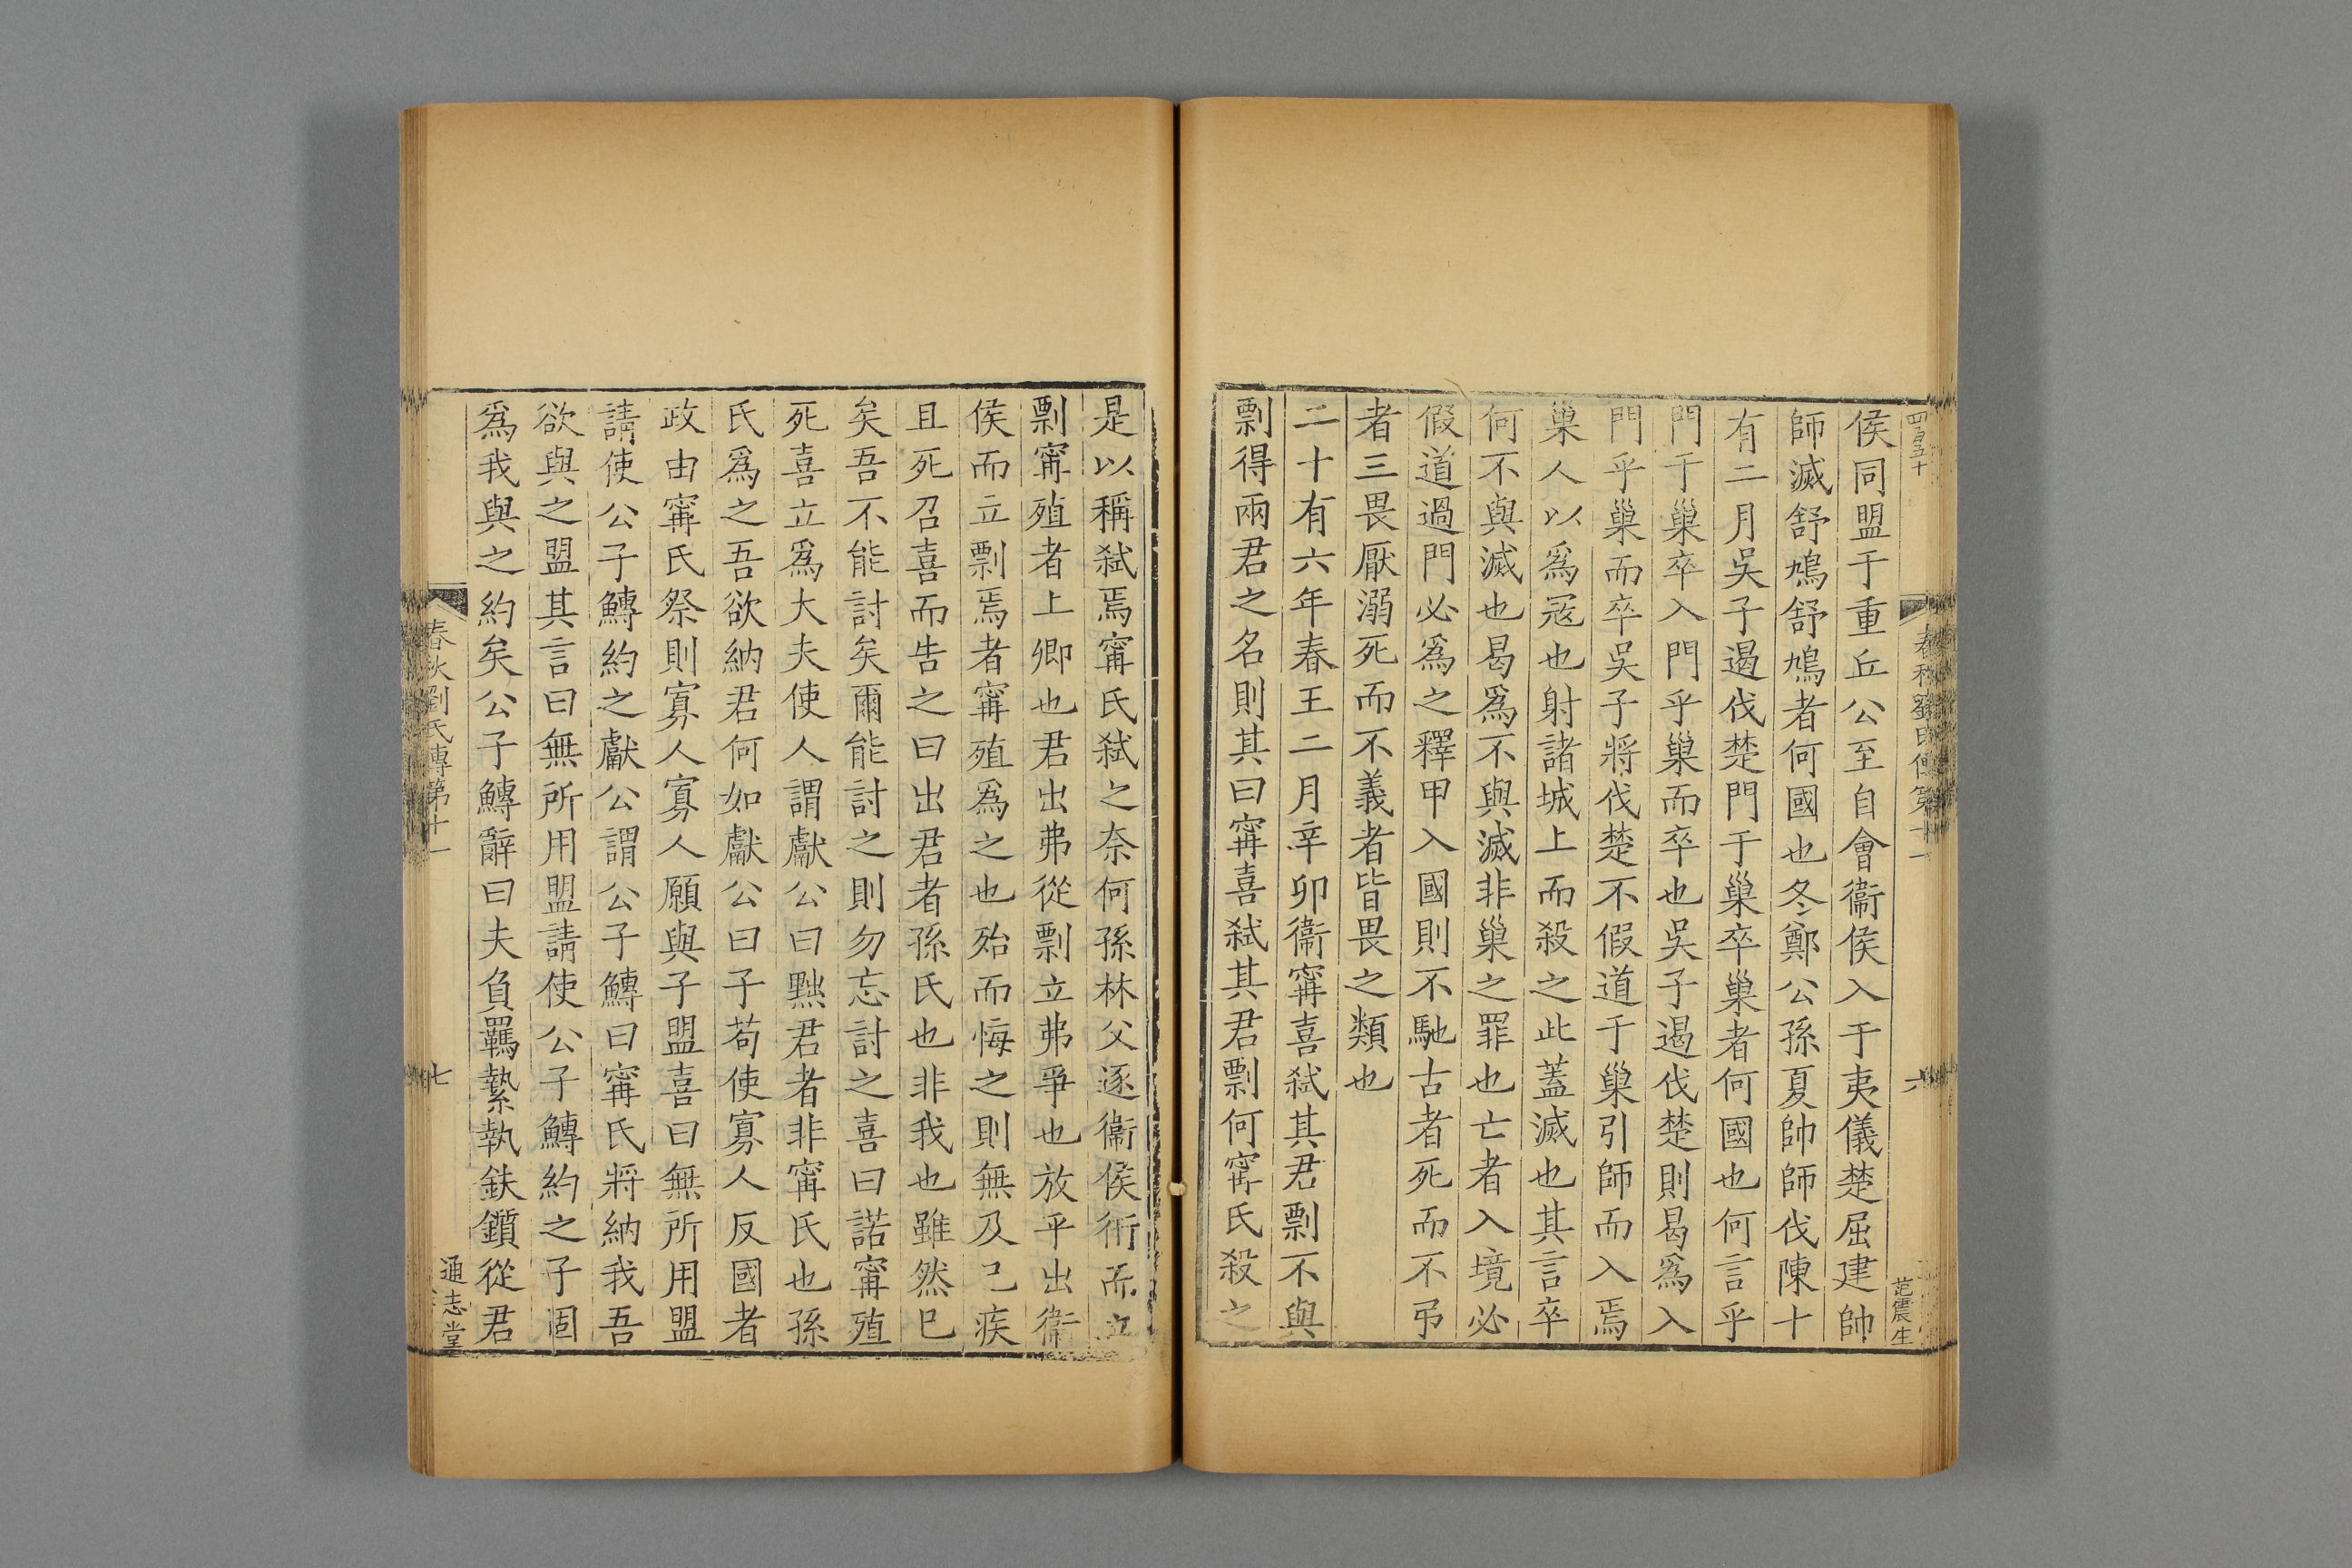 四百五十
春秋劉氏傳第十一
六
范震生
侯同盟于重丘公至自會衞侯入于夷儀楚屈建帥
師滅舒鳩舒鳩者何國也冬鄭公孫夏帥師伐陳十
有二月吳子遏伐楚門于巢卒巢者何國也何言乎
門于巢卒入門乎巢而卒也吳子遏伐楚則曷爲入
門乎巢而卒吳子將伐楚不假道于巢引師而入焉
巢人以爲冦也射諸城上而殺之此蓋滅也其言卒
何不與滅也曷爲不與滅非巢之罪也亡者入境必
假道過門必爲之釋甲入國則不馳古者死而不弔
者三畏厭溺死而不義者皆畏之類也
二十有六年春王二月辛卯衞甯喜弑其君剽不與
剽得兩君之名則其曰甯喜弑其君剽何甯氏殺之
是以稱弑焉甯氏弑之奈何孫林父逐衞侯衎而立
剽甯殖者上卿也君出弗從剽立弗爭也放乎出衞
侯而立剽焉者甯殖爲之也殆而悔之則無及已疾
且死召喜而告之曰出君者孫氏也非我也雖然已
矣吾不能討矣爾能討之則勿忘討之喜曰諾甯殖
死喜立爲大夫使人謂獻公曰黜君者非甯氏也孫
氏爲之吾欲納君何如獻公曰子苟使寡人反國者
政由甯氏祭則寡人寡人願與子盟喜曰無所用盟
請使公子鱄約之獻公謂公子鱄曰甯氏將納我吾
欲與之盟其言曰無所用盟請使公子鱄約之子固
爲我與之約矣公子鱄辭曰夫負羈縶執鈇鑕從君
春秋劉氏傳第十一
七
通志堂